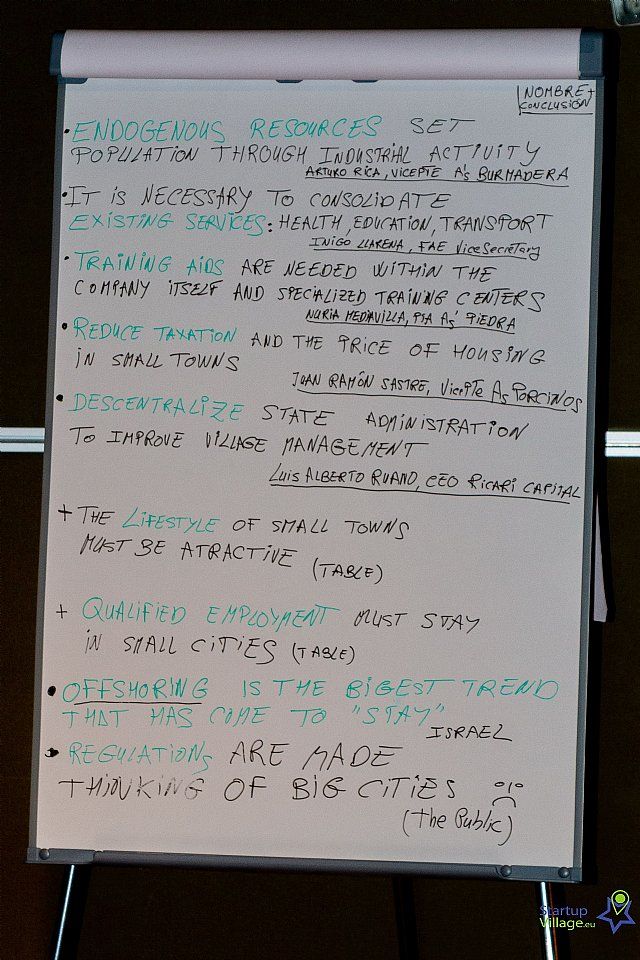 NOMBRE +
CONCLUSIÓN
• ENDOGENOUS RESOURCES SET
POPULATION THROUGH INDUSTRIAL ACTIVITY
ARTURO RICA, VICEPTE A's BURMADERA
• IT IS NECESSARY TO CONSOLIDATE
EXISTING SERVICES: HEALTH, EDUCATION, TRANSPORT
IÑIGO LLARENA, FAE ViceSecretary
• TRAINING AIDS ARE NEEDED WITHIN THE
COMPANY ITSELF AND SPECIALIZED TRAINING CENTERS
NURIA MEDIAVILLA, PTA As' PIEDRA
• REDUCE TAXATION AND THE PRICE OF HOUSING
IN SMALL TOWNS
JUAN RAMÓN SASTRE, VICEPTE As PORCINOS
• DESCENTRALIZE STATE ADMINISTRATION
TO IMPROVE VILLAGE MANAGEMENT
LUIS ALBERTO RUANO, CEO RICARI CAPITAL
+ THE LIFESTYLE OF SMALL TOWNS
MUST BE ATRACTIVE (TABLE)
+ QUALIFIED EMPLOYMENT MUST STAY
IN SMALL CITIES (TABLE)
• OFFSHORING IS THE BIGEST TREND
THAT HAS COME TO "STAY"
ISRAEL
• REGULATIONS ARE MADE
THINKING OF BIG CITIES
(The Public)
Startup
Village.eu